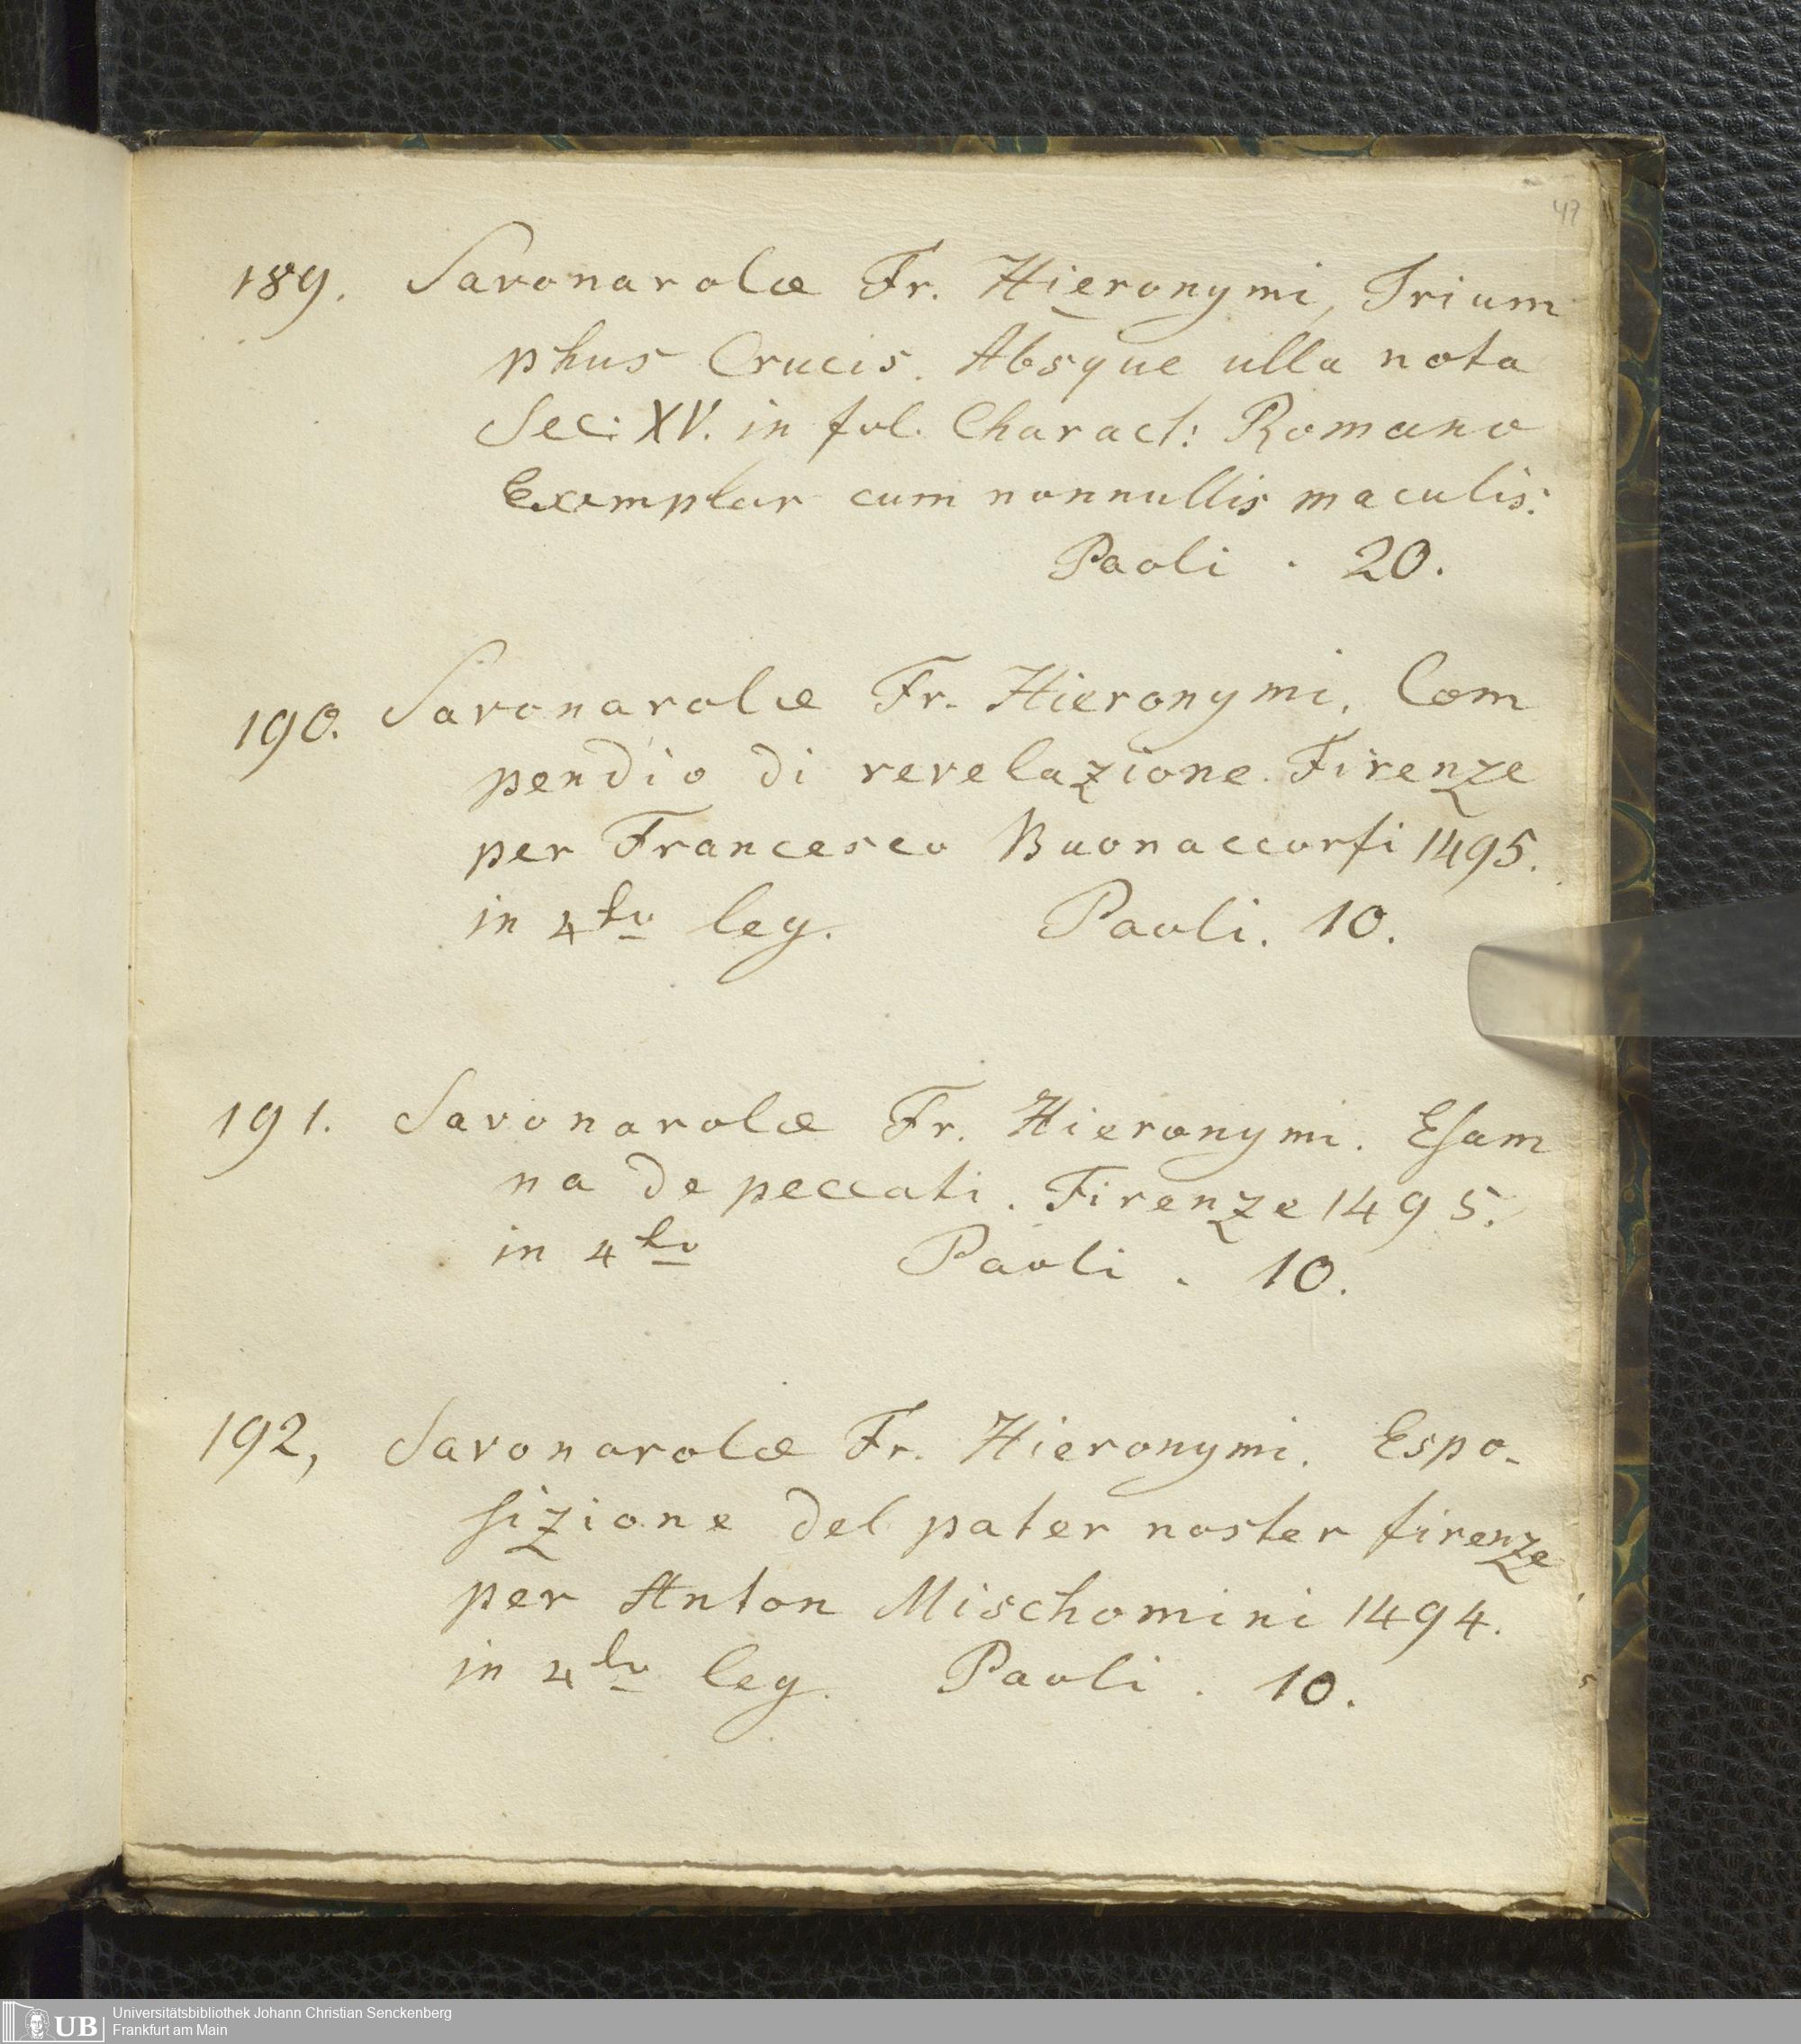 47
189. Savonarolæ Fr. Hieronymi, Trium
phus Crucis. Absque ulla nota
Sec: XV. in fol. Charact: Romano
Exemplar cum nonnullis maculis.
Paoli . 20.
190. Savonarolæ Fr. Hieronymi. Com
pendio di revelazione. Firenze
per Francesco Buonaccorsi 1495.
in 4to leg. Paoli. 10.
191. Savonarolæ Fr. Hieronymi. Esam
na de peccati. Firenze 1495.
in 4to Paoli . 10.
192, Savonarolæ Fr. Hieronymi. Espo-
sizione del pater noster firenze
per Anton Mischomini 1494.
in 4to leg. Paoli . 10.
UB Universitätsbibliothek Johann Christian Senckenberg
Frankfurt am Main